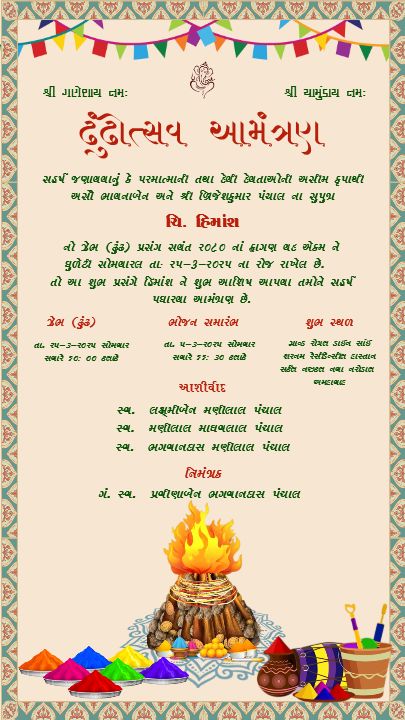 શ્રી ગણેશાય નમઃ
શ્રી ચામુંડાય નમઃ
ઢુંઢોત્સવ આમંત્રણ
સહર્ષ જણાવવાનું કે પરમાત્માની તથા દેવી દેવતાઓની અસીમ કૃપાથી
અસૌ ભાવનાબેન અને શ્રી બ્રિજેશકુમાર પંચાલ ના સુપુત્ર
ચિ. હિમાંશ
નો પ્રેમ (ઢુંઢ) પ્રસંગ સવંત ૨૦૮૦ નાં ફાગણ વદ એકમ ને
ધુળેટી સોમવારલ તા. ૨૫-૩-૨૦૨૫ ના રોજ રાખેલ છે.
તો આ શુભ પ્રસંગે હિમાંશ ને શુભ આશિષ આપવા તમોને સહર્ષ
પધારવા આમંત્રણ છે.
પ્રેમ (ઢુંઢ)
તા. ૨૫-૩-૨૦૨૫ સોમવાર
સવારે ૧૦: ૦૦ કલાકે
ભોજન સમારંભ
તા. ૫-૩-૨૦૨૫ સોમવાર
સવારે ૧૧: ૩૦ કલાકે
શુભ સ્થળ
ગ્રાન્ડ રોયલ ડાઈન સાંઈ
શરનમ રેસીડેન્સીલ હાસ્તાન
સર્કલ નરાઇલ નવા નરોડાલ
અમદાવાદ
આશીર્વાદ
સ્વ. લક્ષ્મીબેન મણીલાલ પંચાલ
સ્વ. મણીલાલ માધવલાલ પંચાલ
સ્વ. ભગવાનદાસ મણીલાલ પંચાલ
નિમંત્રક
ગં. સ્વ. પ્રવીણાબેન ભગવાનદાસ પંચાલ